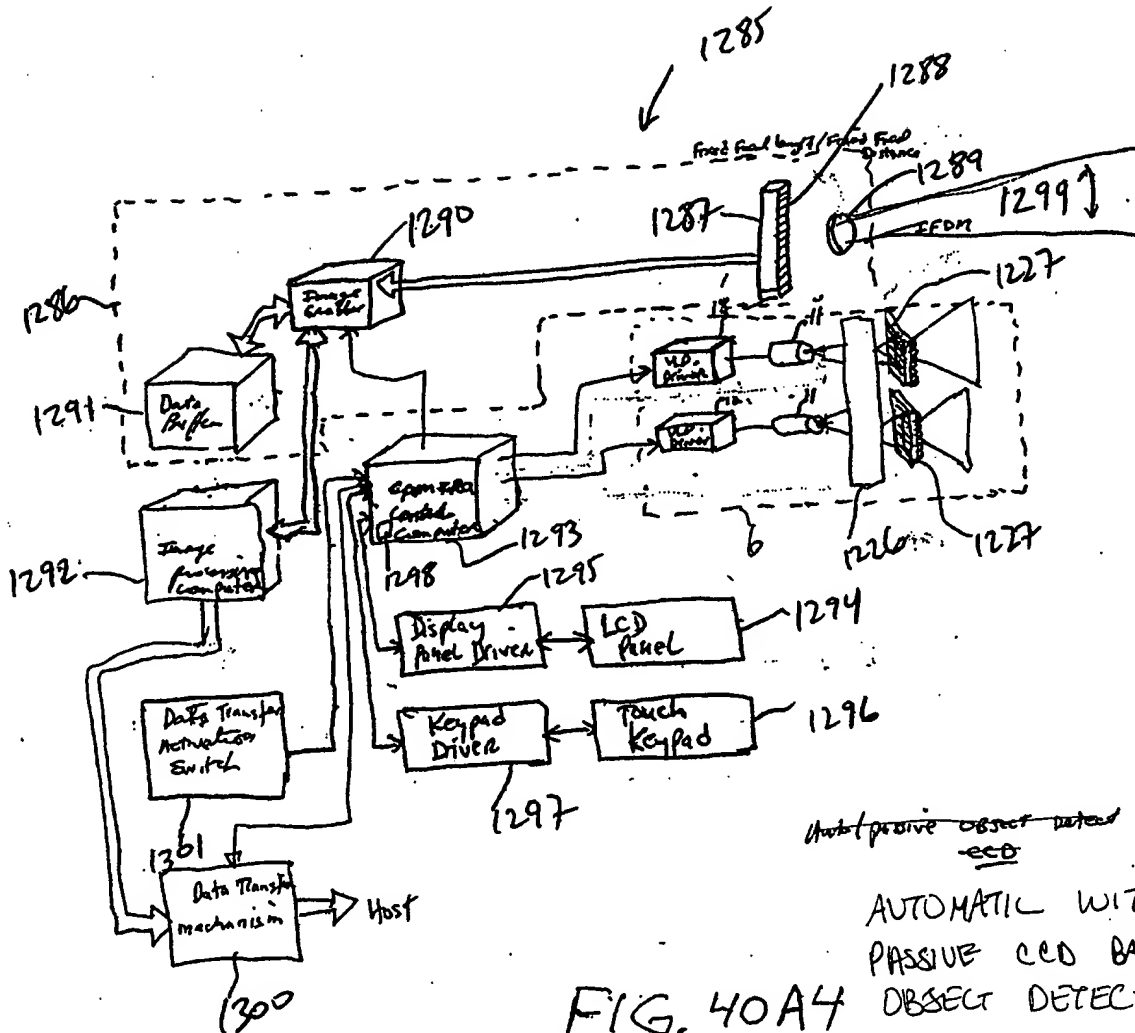 1285
1288
Fixed Focal Length/Fixed Focal
Distance
1289
1287
1299
IFDM
1290
1286
Image
Grabber
1227
12
11
VLD
Driver
12
11
VLD
Driver
1291
Data
Buffer
Camera
Control
Computer
1293
1298
6
1226
1227
1292
Image
processing
Computer
1295
Display
Panel Driver
LCD
Panel
1294
Data Transfer
Activation
Switch
1301
Keypad
Driver
Touch
Keypad
1296
1297
Data Transfer
mechanism
Host
1300
Auto/passive OBJECT Detect
CCD
AUTOMATIC WIT
PASSIVE CCD BA
OBJECT DETEC
FIG. 40A4